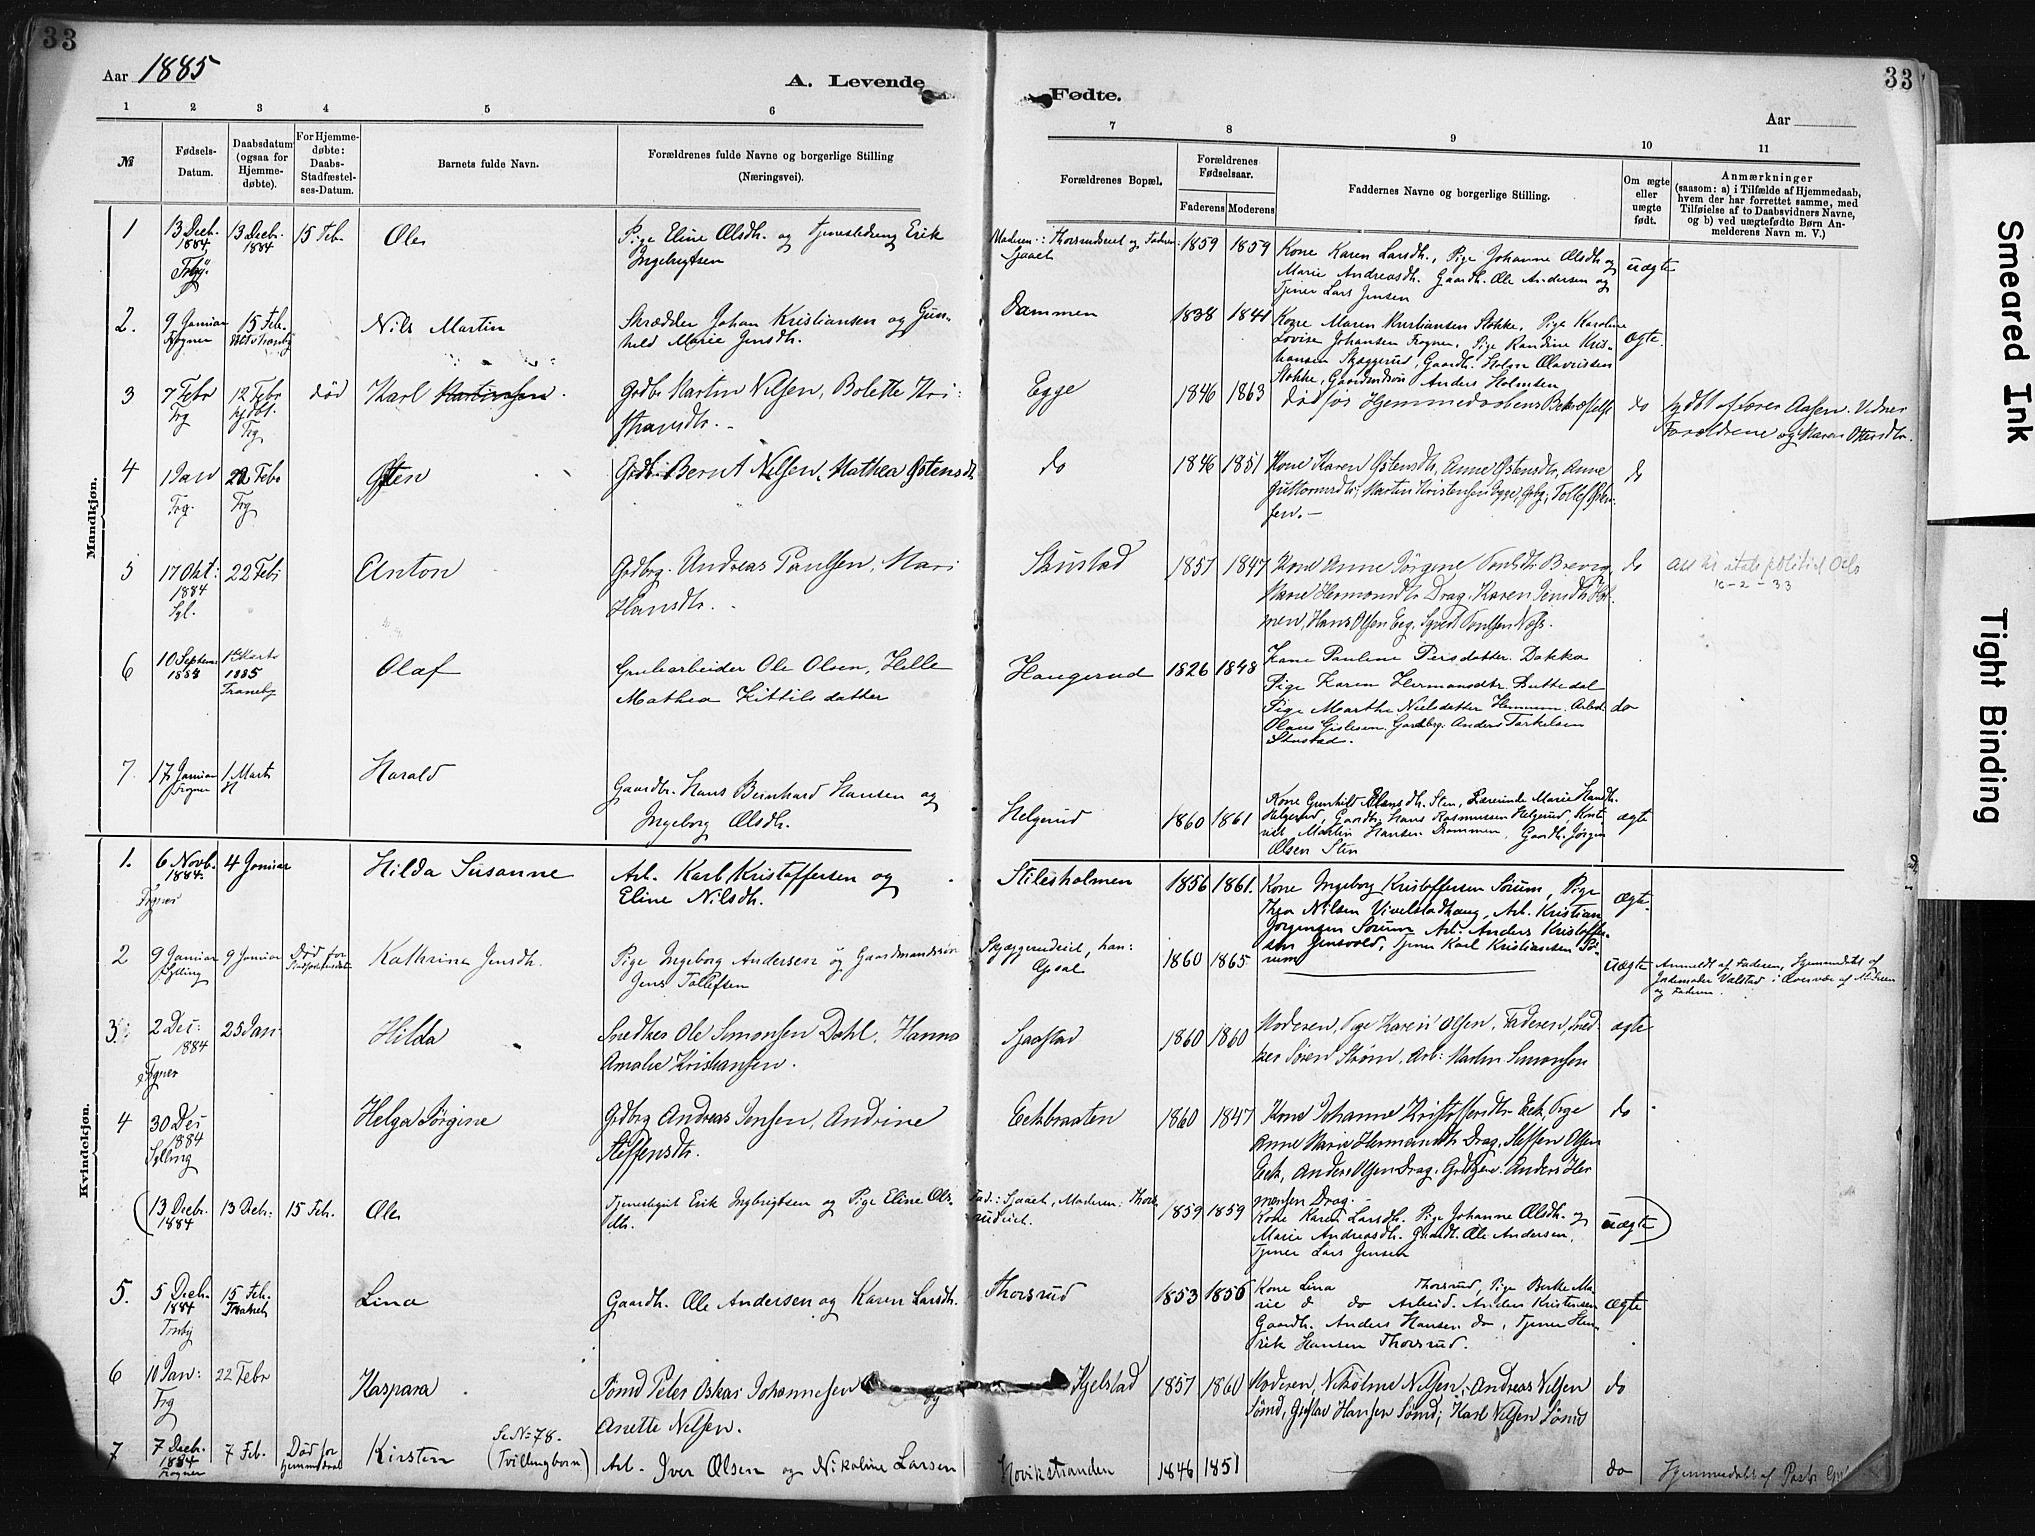 33
Aar 1885
A. Levende
Fødte.
33
Aar
1 2 3 4 5 6 7 8 9 10 11
№
Fødsels-Datum.
Daabsdatum (ogsaa for Hjemme-døbte).
For Hjemme-døbte: Daabs-Stadfæstel-ses-Datum.
Barnets fulde Navn.
Forældrenes fulde Navne og borgerlige Stilling (Næringsvei).
Forældrenes Bopæl.
Forældrenes Fødselsaar.
Faderens Moderens
Faddernes Navne og borgerlige Stilling.
Om ægte eller uægte født.
Anmærkninger
(saasom: a) i Tilfælde af Hjemmedaab, hvem der har forrettet samme, med Tilføielse af to Daabsvidners Navne, og b) ved uægtefødte Børn Anmelderens Navn m. V.)
Mandkjøn.
1 13 Decb. 1884 13 Decb. 1884 15 Feb. Ole Pige Eline Olsdh. og Tjenestedreng Erik
Ingebrigtsen
1859 1859 Kone Karen Larsdh., Pige Johanne Olsdh og
Marie Andreasdh. Gaardb. Ole Andersen og
Tjener Lars Jensen
uægte
2. 9 Januar Frogner 15 Feb. Nils Martin Skrædder Johan Kristiansen og Gun-
hild Marie Jensdh.
Dammen 1838 1841 Kone Maren Kristiansen Stokke, Pige Karoline
Lovise Johansen Frogner, Pige Randine Kris-
tiansen Skæggerud, Gaardb. Holm Olavessen
Stokke, Gaardmandssøn Anders Holmsen
ægte.
3 7 Febr Frg 12 Febr hjdbt. Frg død Karl Grdbr Martin Nilsen, Bolette Kri-
stiansdtr.
Egge 1846 1863 død før Hjemmedaabens Bekræftelse do hjdbt af Lærer Aasen. Vidner
Forældrene og Maren Ottersdtr.
4 1 Jan Frg. 22 Febr Frg Østen Grdb: Bernt Nilsen, Mathea Østensdtr
do 1846 1851 Kone Karen Østensdtr, Anne Østensdtr, Anne
Guttormsdtr; Martin Kristensen Egge, Grbg; Tollef Østen-
sen.
do
5 17 Okt: 1884 Syl. 22 Feb: Anton Grdbrg. Andreas Paulsen, Mari
Hansdtr.
Skustad 1857 1847 Kone Anne Sørgine Paulsdtr Brevig,
Marie Hermansdtr Drag, Karen Jensdtr Hol-
men, Hans Olsen Eeg, Syvert Paulsen Næs.
do
16-2-33
6 10 Septemr 1883 15 Marts 1885 Traneby Olaf Grubearbeider Ole Olsen, Helle
Mathea Kittilsdatter
Haugerud 1826 1848 Kone Pauline Persdatter Dakka
Pige Karen Hermansdtr. Buttedal
Pige Marthe Nielsdatter Hennum. Arbeid.
Olaus Gislesen. Gardbrg. Anders Torkelsen
Skustad.
do
7. 17 Januar Frogner 1 Marts Harald
Gaardb. Hans Bernhard Hansen og
Ingeborg Olsdh.
Helgerud 1860 1861 Kone Gunhild Hansdh. Sten, Lærerinde Marie Hansdh.
Helgerud, Gaardb. Hans Rasmussen Helgerud,
Martin Hansen Drammen, Gaardb. Jørgen
Olsen Sten
ægte
Kvindekjøn.
1. 6 Novb. 1884. Frogner 4 Januar Hilda Susanne Arb. Karl Kristoffersen og
Eline Nilsdh.
Stilesholmen 1856 1861. Kone Ingeborg Kristoffersen Sørum, Pige
Thea Nilsen Vivelstadhaug, Arb. Kristian
Jørgensen Sørum Arb. Anders Kristoffer-
sen Jensvold, Tjener Karl Kristiansen Sø-
rum
ægte.
2 9 Januar Sylling 9 Januar Død før Stadfæstelsen Kathrine Jensdh. Pige Ingeborg Andersen og Gaardmandssøn
Jens Tollefsen
Skjæggerudeiet, han:
Opsal
1860 1865 uægte Anmeldt af Faderen, Hjemmedøbt af
Jordemoder Valstad i Overvær af Moderen
og Faderen.
3. 2 Dec: 1884 Frogner 25 Jan: Hilda Snedker Ole Simonsen Dahl, Hanna
Amalie Kristiansen.
Sjaastad 1860 1860 Moderen, Pige Karen Olsen, Faderen, Sned-
ker Søren Strøm, Arb: Martin Simonsen
ægte
4 30 Dec 1884 Sylling Helga Sørgine Grdbrg Andreas Jensen, Andrine
Steffensdtr.
Eekbraaten 1860 1847 Kone Johanne Kristoffersdtr Eek, Pige
Anne Marie Hermansdtr Drag, Steffen Olsen
Eek, Anders Olsen Drag, Grdbrgere. Anders Her-
mansen Drag.
do
(13 Decb. 1884 13 Decb. 15 Feb. Ole Tjenestegut Erik Ingebrigtsen og Pige Eline Ols-
dh.
Fad.: Sjaaet, Moderen: Thors-
rudeiet.
1859 1859 Kone Karen Larsdh. Pige Johanne Olsdh. og
Marie Andreasdh. Gaardb. Ole Andersen,
Tjener Lars Jensen
uægte)
5. 5 Decb. 1884 15 Feb. Lina Gaardb. Ole Andersen og Karen Larsdh.
Thorsrud 1853 1856 Kone Lina Thorsrud, Pige Berthe Ma-
rie do Arbeid. Anders Kristensen
Gaardb. Anders Hansen do, Tjener Hen-
rik Hansen Thorsrud.
ægte
6 10 Jan: Frg 22 Febr Kaspara Sømd Peter Oskar Johannesen og
Anette Nilsen.
Kjelstad 1857 1860 Moderen, Nikoline Nilsen; Andreas Nilsen
Sømd, Gustav Hansen Sømd; Karl Nilsen Sømd
do
7 7 Decb. 1884 Frogner 7 Feb. Død før Hjemmedaab Kirsten Se No 78. (Tvillingbarn) Arb. Iver Olsen og Nikoline Larsen
Hovikstranden 1846 1851 do Hjemmedøbt af Pastor
Smeared Ink
Tight Binding